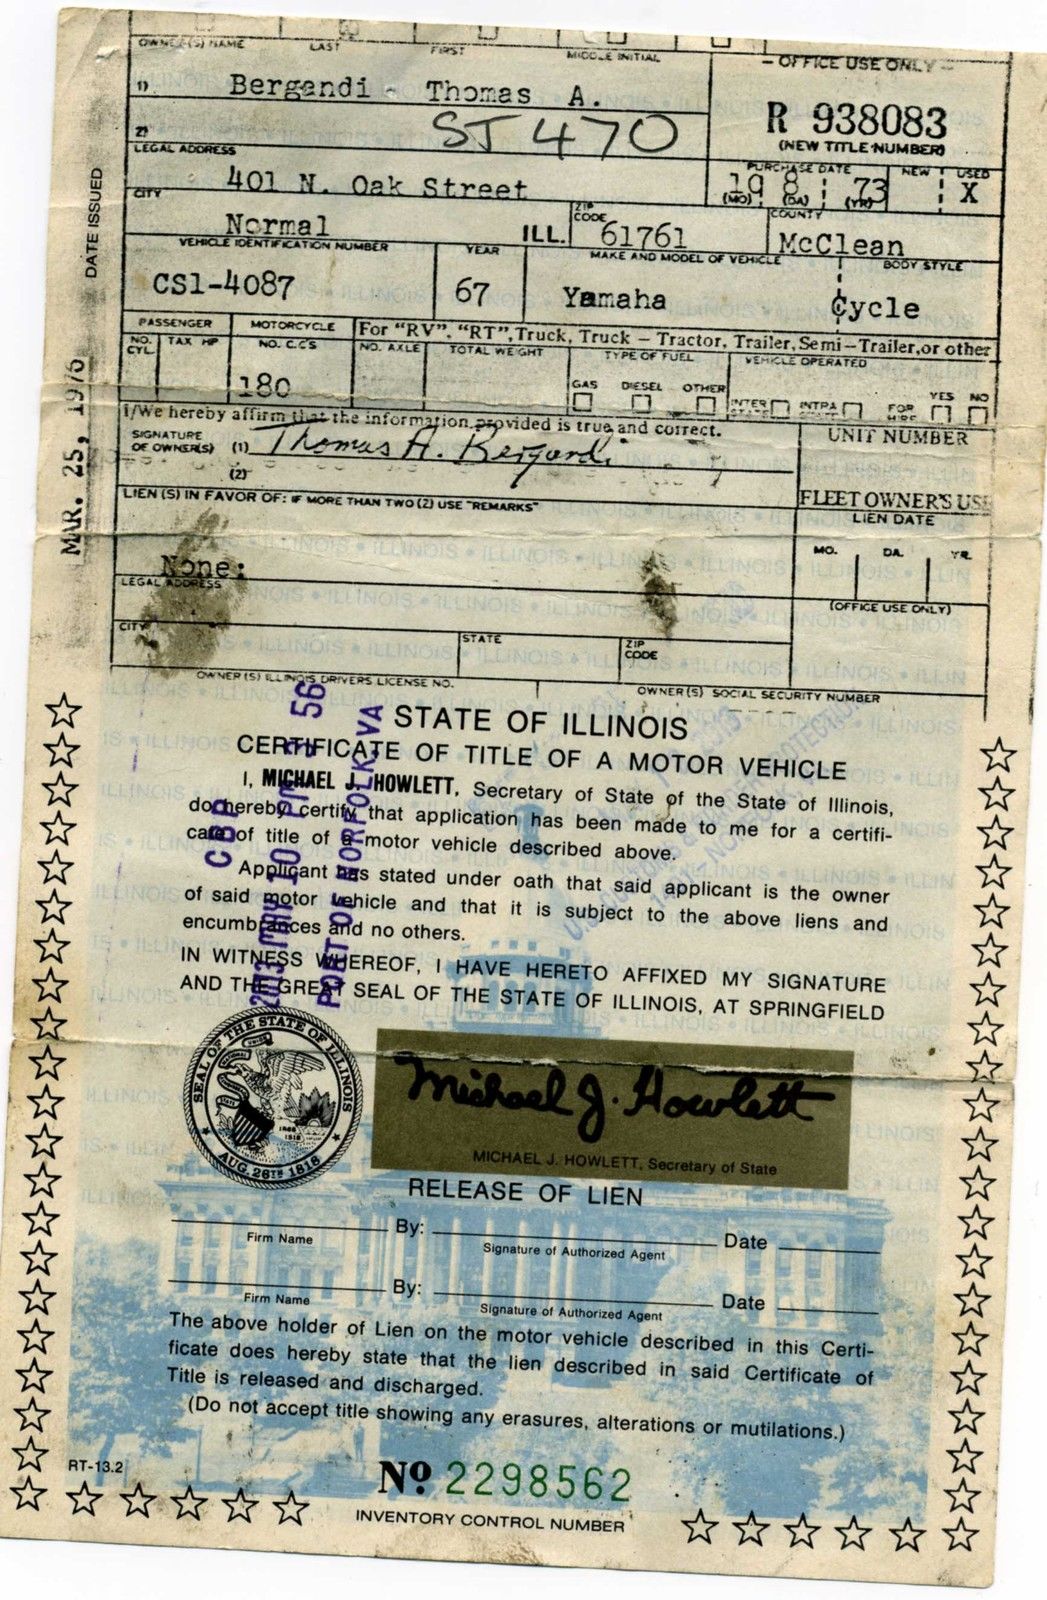 OWNER(S) NAME LAST FIRST MIDDLE INITIAL
— OFFICE USE ONLY —
1) Bergandi - Thomas A.
R 938083
(NEW TITLE NUMBER)
2) ST 470
LEGAL ADDRESS
401 N. Oak Street
PURCHASE DATE NEW USED
19 8 73 X
(MO) (DA) (YR)
CITY
Normal ILL. ZIP CODE 61761 COUNTY McClean
VEHICLE IDENTIFICATION NUMBER YEAR MAKE AND MODEL OF VEHICLE BODY STYLE
CS1-4087 67 Yamaha Cycle
PASSENGER MOTORCYCLE For "RV", "RT", Truck, Truck — Tractor, Trailer, Semi-Trailer, or other
NO. CYL. TAX HP NO. C.C'S NO. AXLE TOTAL WEIGHT TYPE OF FUEL VEHICLE OPERATED
180 GAS DIESEL OTHER INTER STATE INTRA FOR HIRE YES NO
I/We hereby affirm that the information provided is true and correct.
UNIT NUMBER
SIGNATURE OF OWNER(S) (1) Thomas A. Bergandi
(2)
FLEET OWNER'S USE
LIEN (S) IN FAVOR OF: IF MORE THAN TWO (2) USE "REMARKS"
LIEN DATE
MO. DA. YR.
None:
LEGAL ADDRESS
(OFFICE USE ONLY)
CITY STATE ZIP CODE
OWNER(S) ILLINOIS DRIVERS LICENSE NO. OWNER(S) SOCIAL SECURITY NUMBER
DATE ISSUED
MAR. 25, 1976
STATE OF ILLINOIS
CERTIFICATE OF TITLE OF A MOTOR VEHICLE
I, MICHAEL J. HOWLETT, Secretary of State of the State of Illinois,
do hereby certify that application has been made to me for a certifi-
cate of title of a motor vehicle described above.
Applicant has stated under oath that said applicant is the owner
of said motor vehicle and that it is subject to the above liens and
encumbrances and no others.
IN WITNESS WHEREOF, I HAVE HERETO AFFIXED MY SIGNATURE
AND THE GREAT SEAL OF THE STATE OF ILLINOIS, AT SPRINGFIELD
CBP
2013 MAY 10 PM 3 56
PORT OF NORFOLK, VA
SEAL OF THE STATE OF ILLINOIS
AUG. 26TH 1818
Michael J. Howlett
MICHAEL J. HOWLETT, Secretary of State
RELEASE OF LIEN
By: Date
Firm Name Signature of Authorized Agent
By: Date
Firm Name Signature of Authorized Agent
The above holder of Lien on the motor vehicle described in this Certi-
ficate does hereby state that the lien described in said Certificate of
Title is released and discharged.
(Do not accept title showing any erasures, alterations or mutilations.)
RT-13.2
No 2298562
INVENTORY CONTROL NUMBER